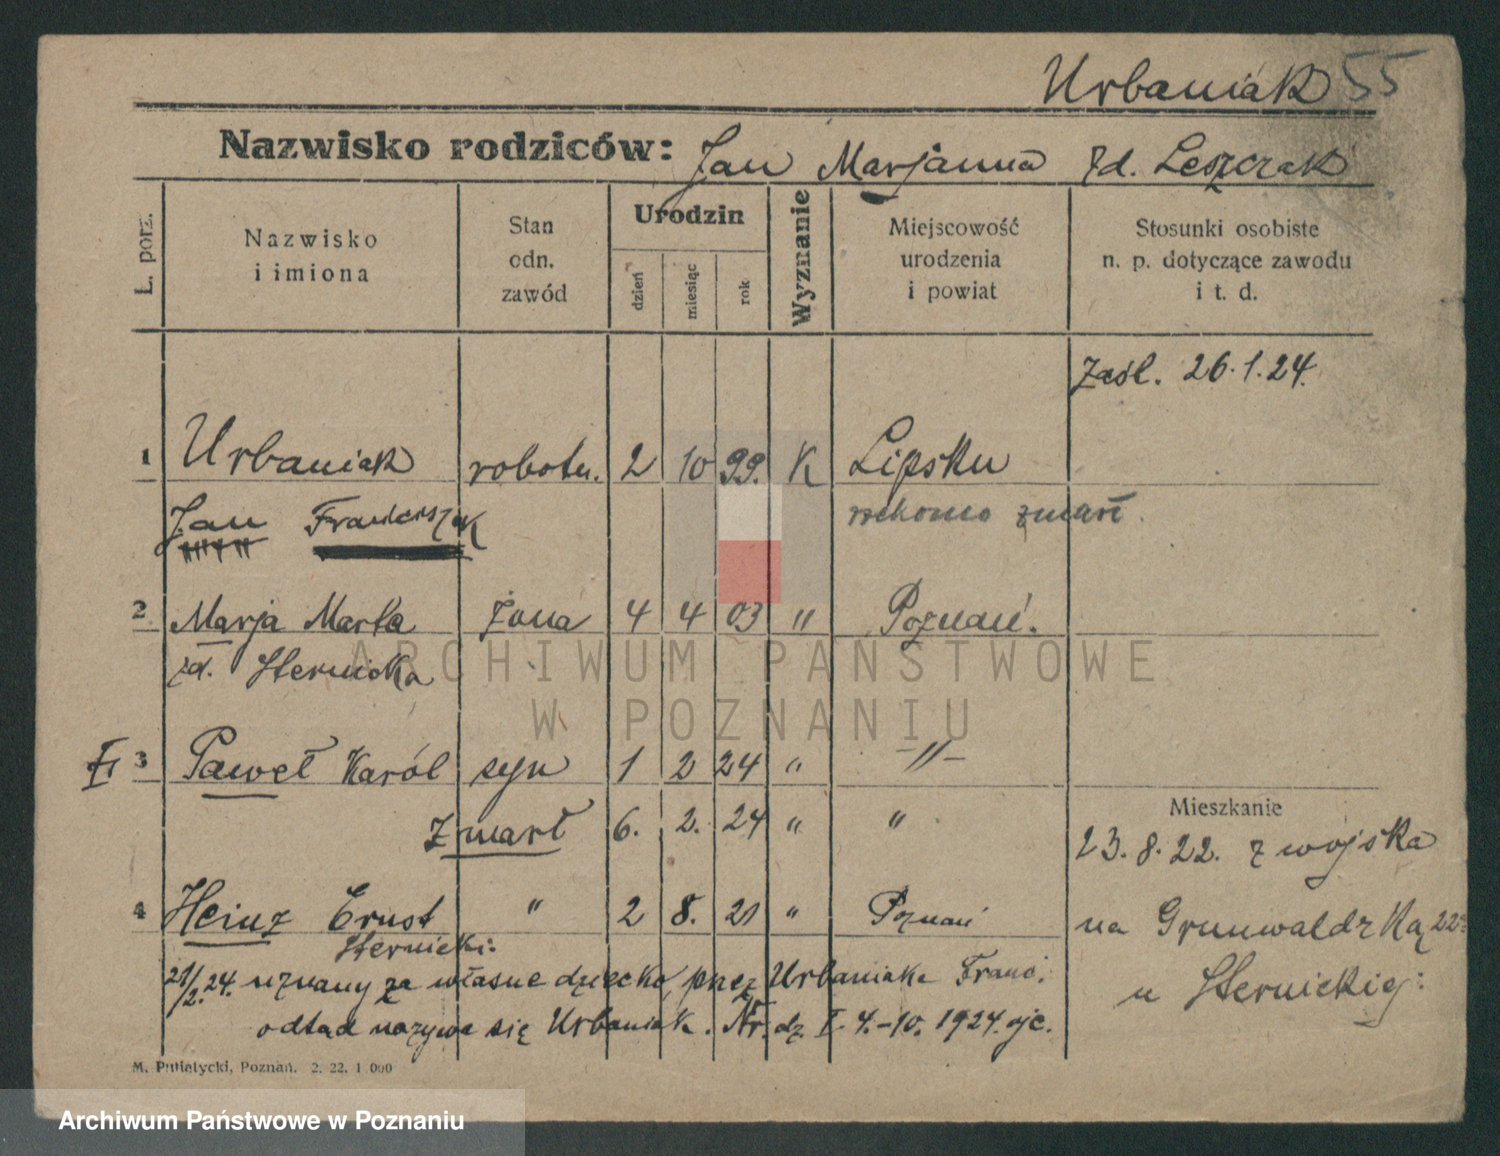 Urbaniak 55
Nazwisko rodziców: Jan Marjanna zd. Leszczak
L. porz.
Nazwisko i imiona
Stan odn. zawód
Urodzin
dzień
miesiąc
rok
Wyznanie
Miejscowość urodzenia i powiat
Stosunki osobiste n. p. dotyczące zawodu i t. d.
Zaśl. 26.1.24.
1 Urbaniak robotn. 2 10 99. K Lipsku
Jan Franciszek rzekomo zmarł.
2 Marja Marta żona 4 4 03 " Poznań.
zd. Sternicka
3 Paweł Karól syn 1 2 24 " -"-
zmarł 6. 2. 24 " "
Mieszkanie
23.8.22. z wojska
4 Heinz Ernst " 2 8. 21 " Poznań
na Grunwaldzką 22
Sternicki:
u Sternickiej:
21/2.24. uznany za własne dziecko, przez Urbaniaka Franc.
odtąd nazywa się Urbaniak. Nr. dz. I. 4.-10. 1924. ojc.
M. Putiatycki, Poznań. 2. 22. 1 000
ARCHIWUM PAŃSTWOWE
W POZNANIU
Archiwum Państwowe w Poznaniu